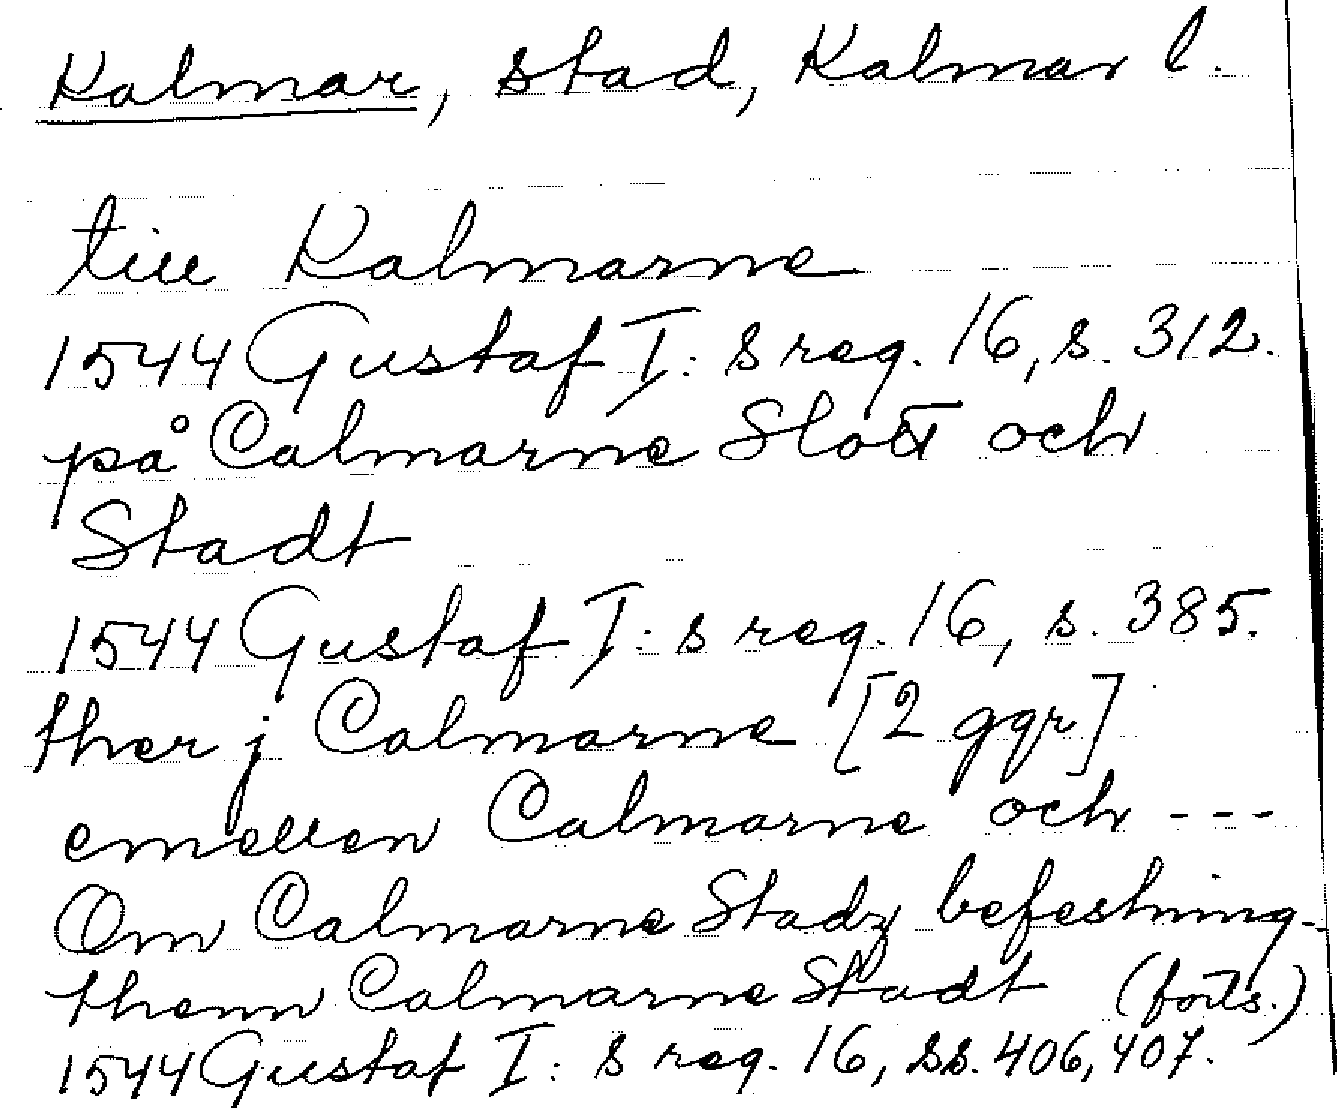 Kalmar, stad, Kalmar l.
till Kalmarne
1544 Gustaf I:s reg. 16, s. 312.
på Calmarne Slott och
Stadt
1544 Gustaf I:s reg. 16, s. 385.
ther j Calmarne [2 ggr]
emellen Calmarne och ---
Om Calmarne Stadz befestning.
thenn Calmarne Stadt (forts.)
1544 Gustaf I:s reg. 16, ss. 406, 407.